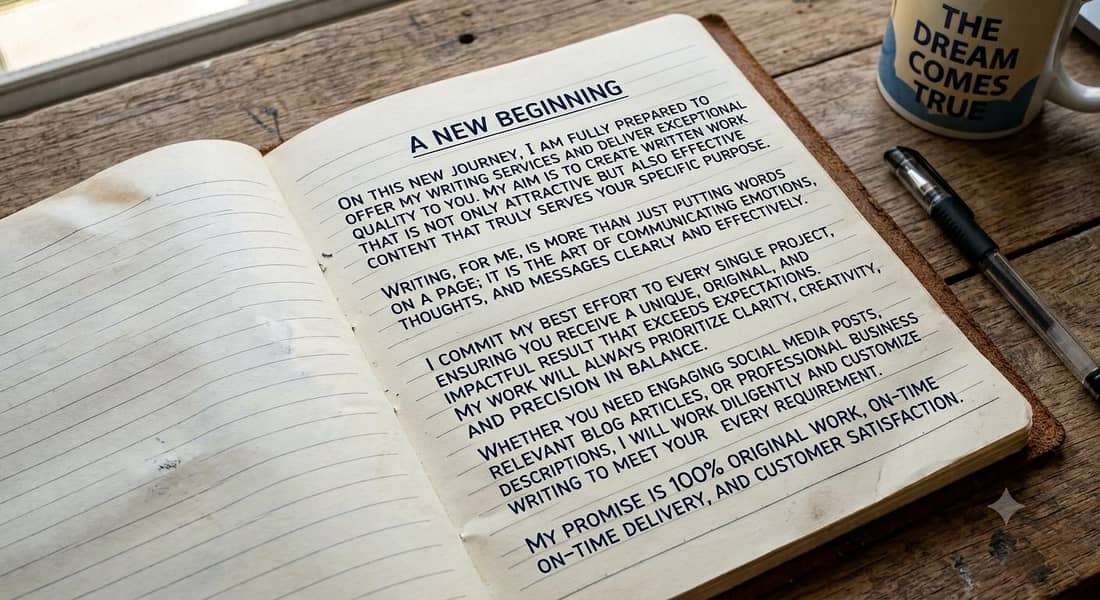 A NEW BEGINNING
ON THIS NEW JOURNEY, I AM FULLY PREPARED TO
OFFER MY WRITING SERVICES AND DELIVER EXCEPTIONAL
QUALITY TO YOU. MY AIM IS TO CREATE WRITTEN WORK
THAT IS NOT ONLY ATTRACTIVE BUT ALSO EFFECTIVE
CONTENT THAT TRULY SERVES YOUR SPECIFIC PURPOSE.
WRITING, FOR ME, IS MORE THAN JUST PUTTING WORDS
ON A PAGE; IT IS THE ART OF COMMUNICATING EMOTIONS,
THOUGHTS, AND MESSAGES CLEARLY AND EFFECTIVELY.
I COMMIT MY BEST EFFORT TO EVERY SINGLE PROJECT,
ENSURING YOU RECEIVE A UNIQUE, ORIGINAL, AND
IMPACTFUL RESULT THAT EXCEEDS EXPECTATIONS.
MY WORK WILL ALWAYS PRIORITIZE CLARITY, CREATIVITY,
AND PRECISION IN BALANCE.
WHETHER YOU NEED ENGAGING SOCIAL MEDIA POSTS,
RELEVANT BLOG ARTICLES, OR PROFESSIONAL BUSINESS
DESCRIPTIONS, I WILL WORK DILIGENTLY AND CUSTOMIZE
WRITING TO MEET YOUR EVERY REQUIREMENT.
MY PROMISE IS 100% ORIGINAL WORK, ON-TIME
ON-TIME DELIVERY, AND CUSTOMER SATISFACTION.
THE
DREAM
COMES
TRUE